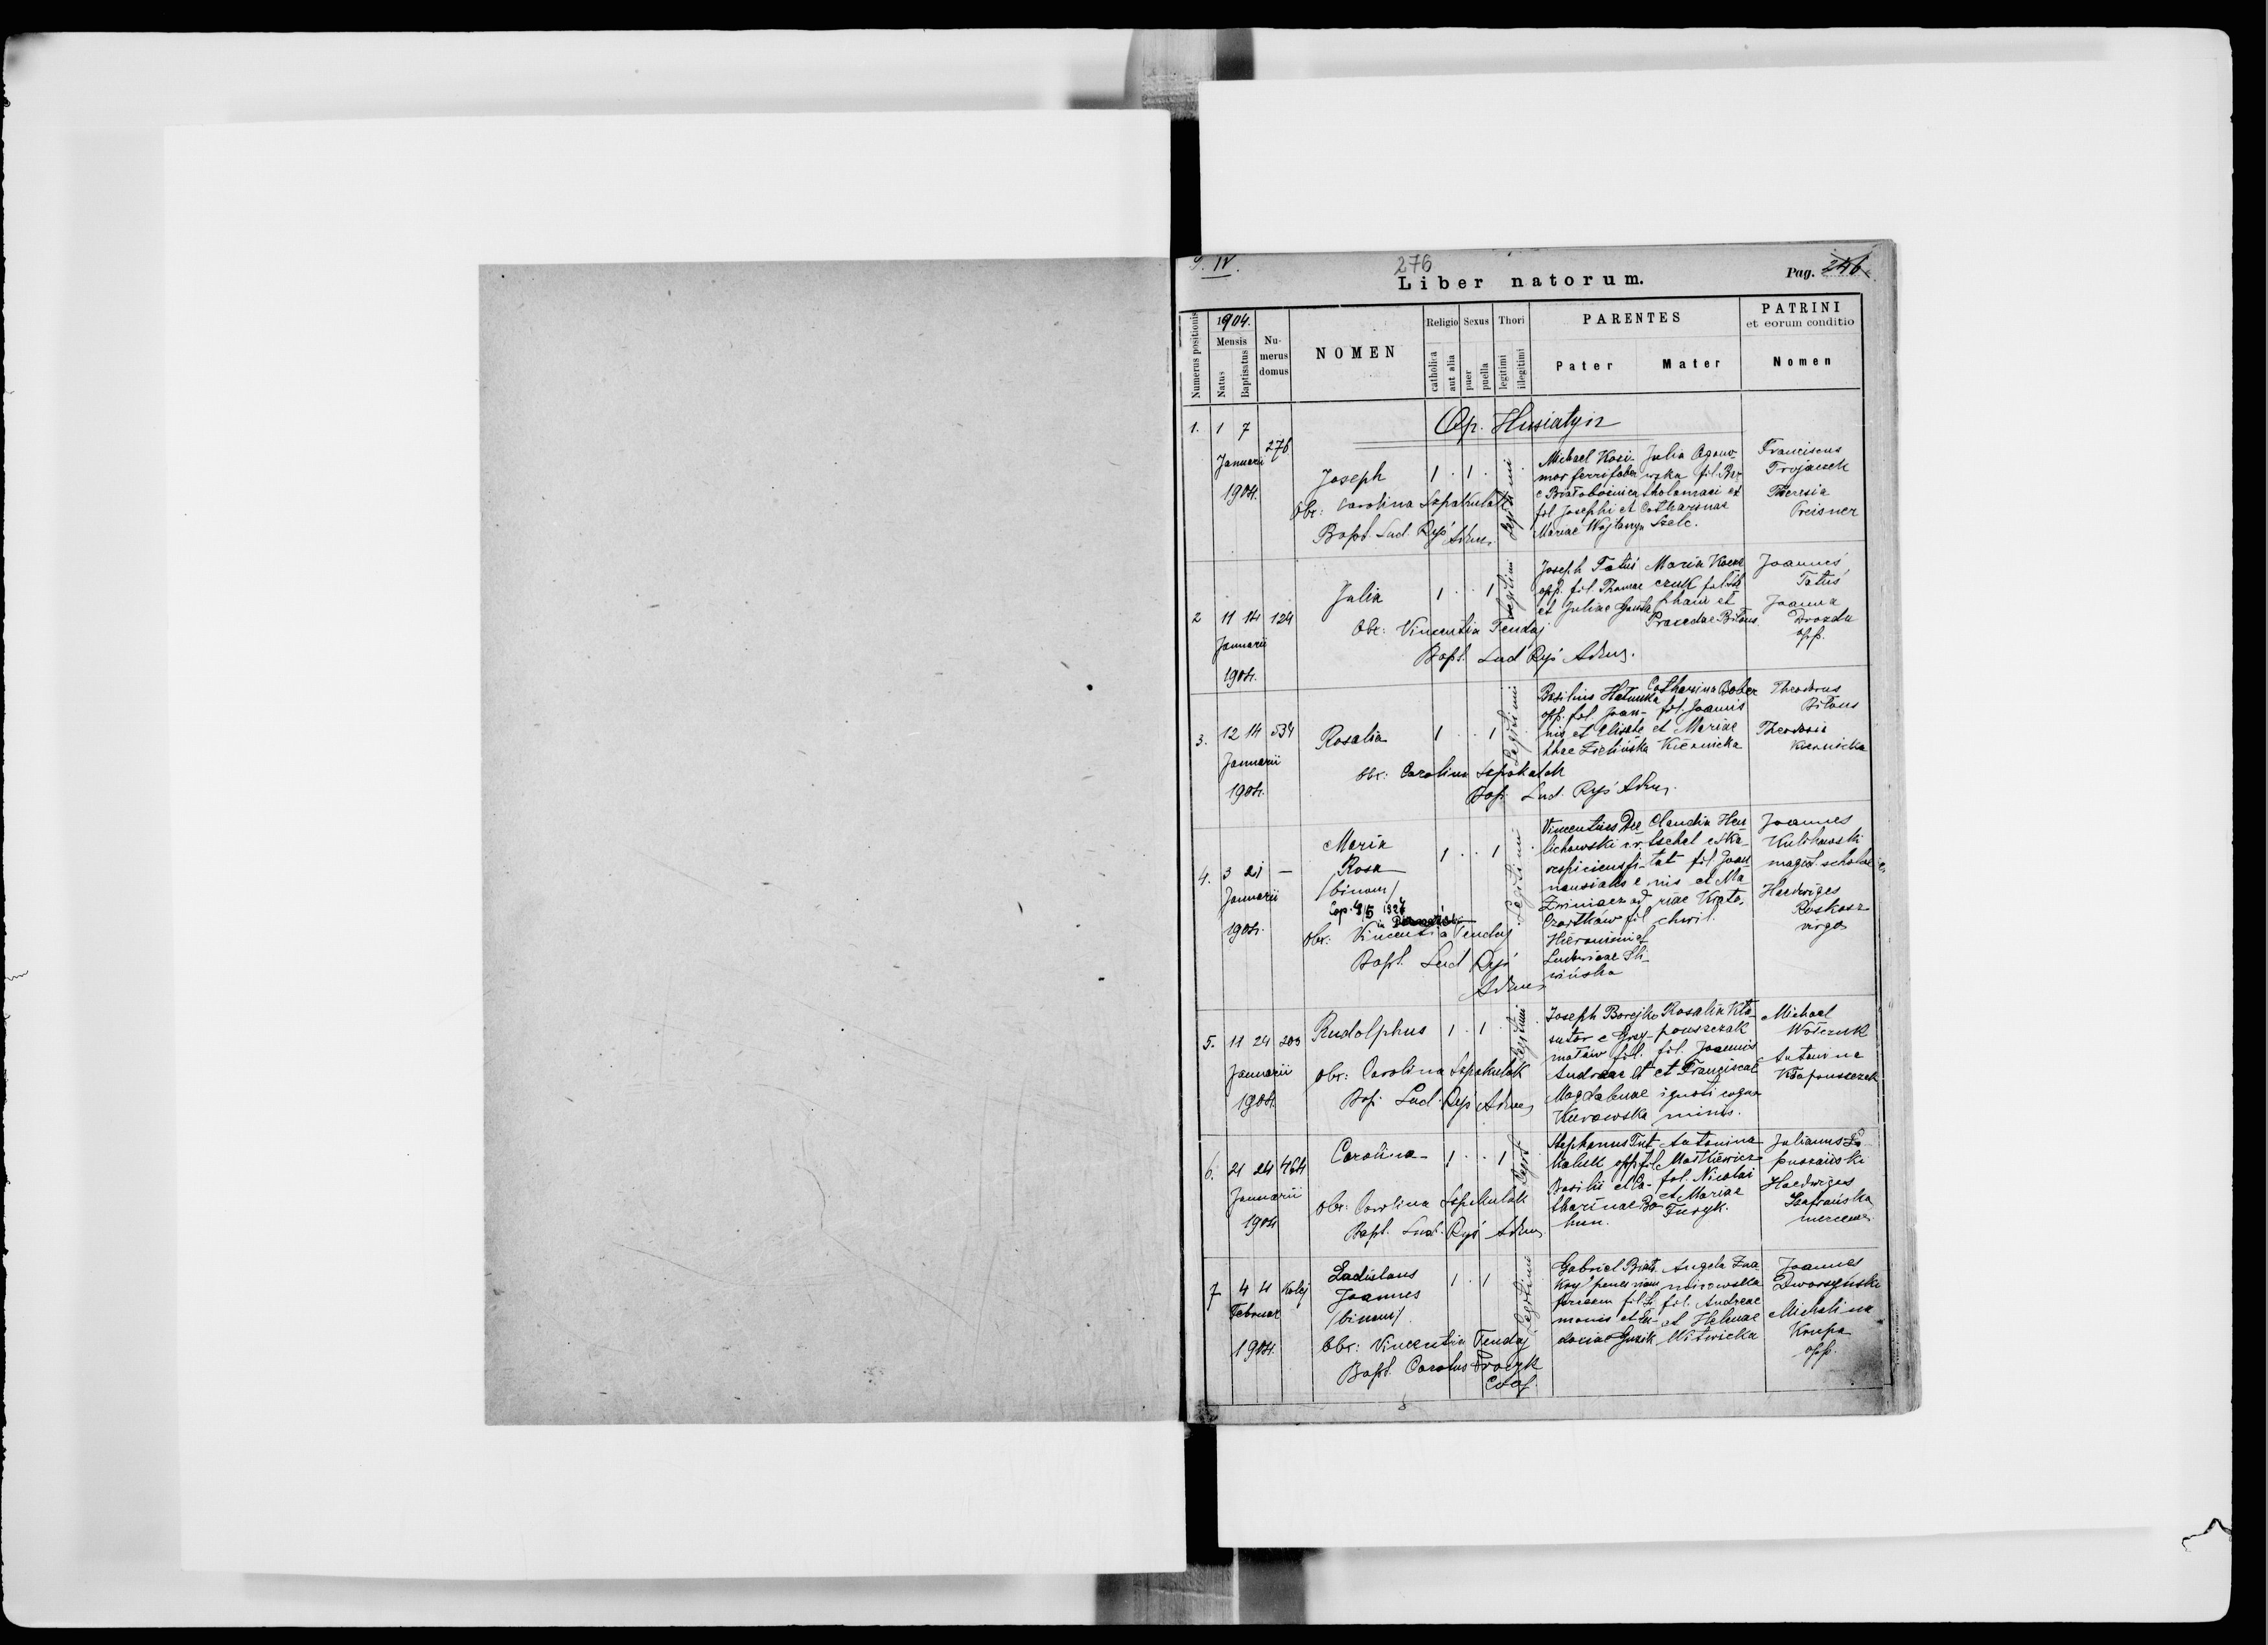 T. IV.
276
Liber natorum.
Pag. 246
Numerus positionis
1904.
Mensis
Natus
Baptisatus
Nu-
merus
domus
NOMEN
Religio
catholica
aut alia
Sexus
puer
puella
Thori
legitimi
illegitimi
PARENTES
Pater Mater
PATRINI
et eorum conditio
Nomen
Op. Husiatyn
1. 1 7 276
Januarii
1904.
Joseph 1 . 1 .
Obs: Carolina Szpakulak
Bapt. Lud. Ryś Admr.
Legitimi
Michael Kosi-
mor ferrifaber
e Białobożnica
fil Josephi et
Mariae Wojtanyn
Julia Ogono-
wska fil. Bar-
tholomaei et
Catharinae
Szelc.
Franciscus
Trojacek
Theresia
Preisner
2 11 14 124
Januarii
1904.
Julia 1 . . 1
Obs: Vincentia Tendaj
Bapt. Lud Ryś Admr.
Legitimi
Joseph Tatuś
opp. fil. Thomae
et Juliae
Maria
czuk fil. Ste
phani et
Praxedae Biłous
Joannes
Tatuś
Joanna
Drozda
opp.
3. 12 14 534
Januarii
1904.
Rosalia 1 . . 1
Obs: Carolina Szpakulak
Bap. Lud. Ryś Admr.
Legitimi
Basilius
opp. fil. Joan-
nis et Elisabe
thae Zielińska
Catharina Bober
fil. Joannis
et Mariae
Kiernicka
Theodorus
Biłous
Theodosia
Kiernicka
4. 3 21 —
Januarii
1904.
Maria
Rosa
/binom/
Cop. 4/5 1927
in
1 . . 1
Obs: Vincentia Tendaj
Bapt. Lud Ryś
Admr.
Legitimi
Vincentius
lichowski
respiciens fi-
nansialis e
Zwiniacz ad
Czortków fil
Hieronimi et
Ludovicae Śli-
wińska
Claudia Hen
tschel e Ska-
łat fil Joan
nis et Ma
riae Krato-
chwil.
Joannes
Kulikowski
magist. scholae
Haedwiges
Roskosz
virgo
5. 11 24 203
Januarii
1904.
Rudolphus 1 . 1 .
Obs: Carolina Szpakulak
Bap. Lud. Ryś Admr.
Legitimi
Joseph Borejko
sutor e Grzy-
małów fil.
Andreae et
Magdalenae
Kurowska
Rosalia Kła-
pouszczak
fil. Joannis
et Franciscae
ignoti cogno
minis.
Michael
Wołczuk
Antonina
Kłapouszczak
6. 21 24 464
Januarii
1904
Carolina 1 . . 1
Obs: Carolina Szpakulak
Bapt. Lud. Ryś Admr.
Legit
Stephanus
opp fil
Basilii et Ca-
tharinae Bo-
hun.
Antonina
Maśkiewicz
fil. Nicolai
et Mariae
Furyk.
Julianus Ło
puszański
Haedwiges
Szafrańska
7 4 4 Kolej
Februar
1904.
Ladislaus
Joannes
/binom/
1 . 1
Obs: Vincentia Tendaj
Bapt. Carolus Procyk
Coop.
Legitimi
Gabriel
penes viam
ferream fil Si
monis et Eu-
doxiae Guzik
Angela Zna
mirowska
fil. Andreae
et Helenae
Witwicka
Joannes
Dworzyński
Michalina
Krupa
opp.